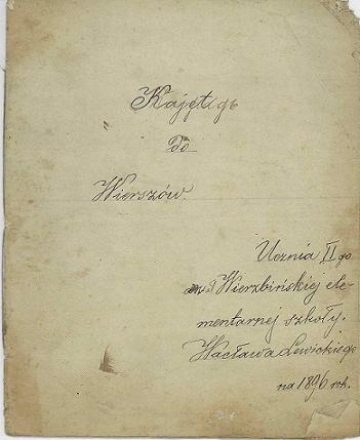 Kajet
do
Wierszów.
Ucznia II go
Wierzbińskiej ele-
mentarnej szkoły.
Wacława Lewickiego
na 1896 rok.